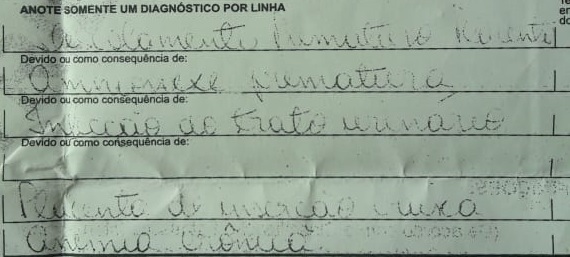 ANOTE SOMENTE UM DIAGNÓSTICO POR LINHA
Descolamento Prematuro
Devido ou como consequência de:
Amniorrexe prematura
Devido ou como consequência de:
Infecção do trato urinário
Devido ou como consequência de:
Placenta de inserção baixa
Anemia Crônica